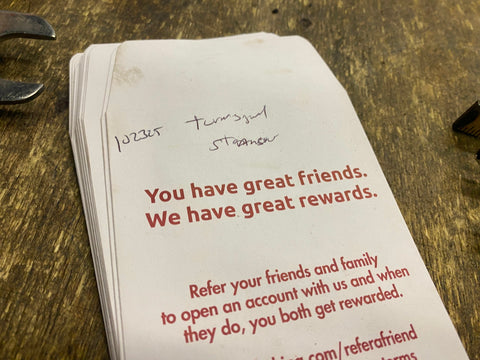 102325
You have great friends.
We have great rewards.
Refer your friends and family
to open an account with us and when
they do, you both get rewarded.
king.com/referafriend